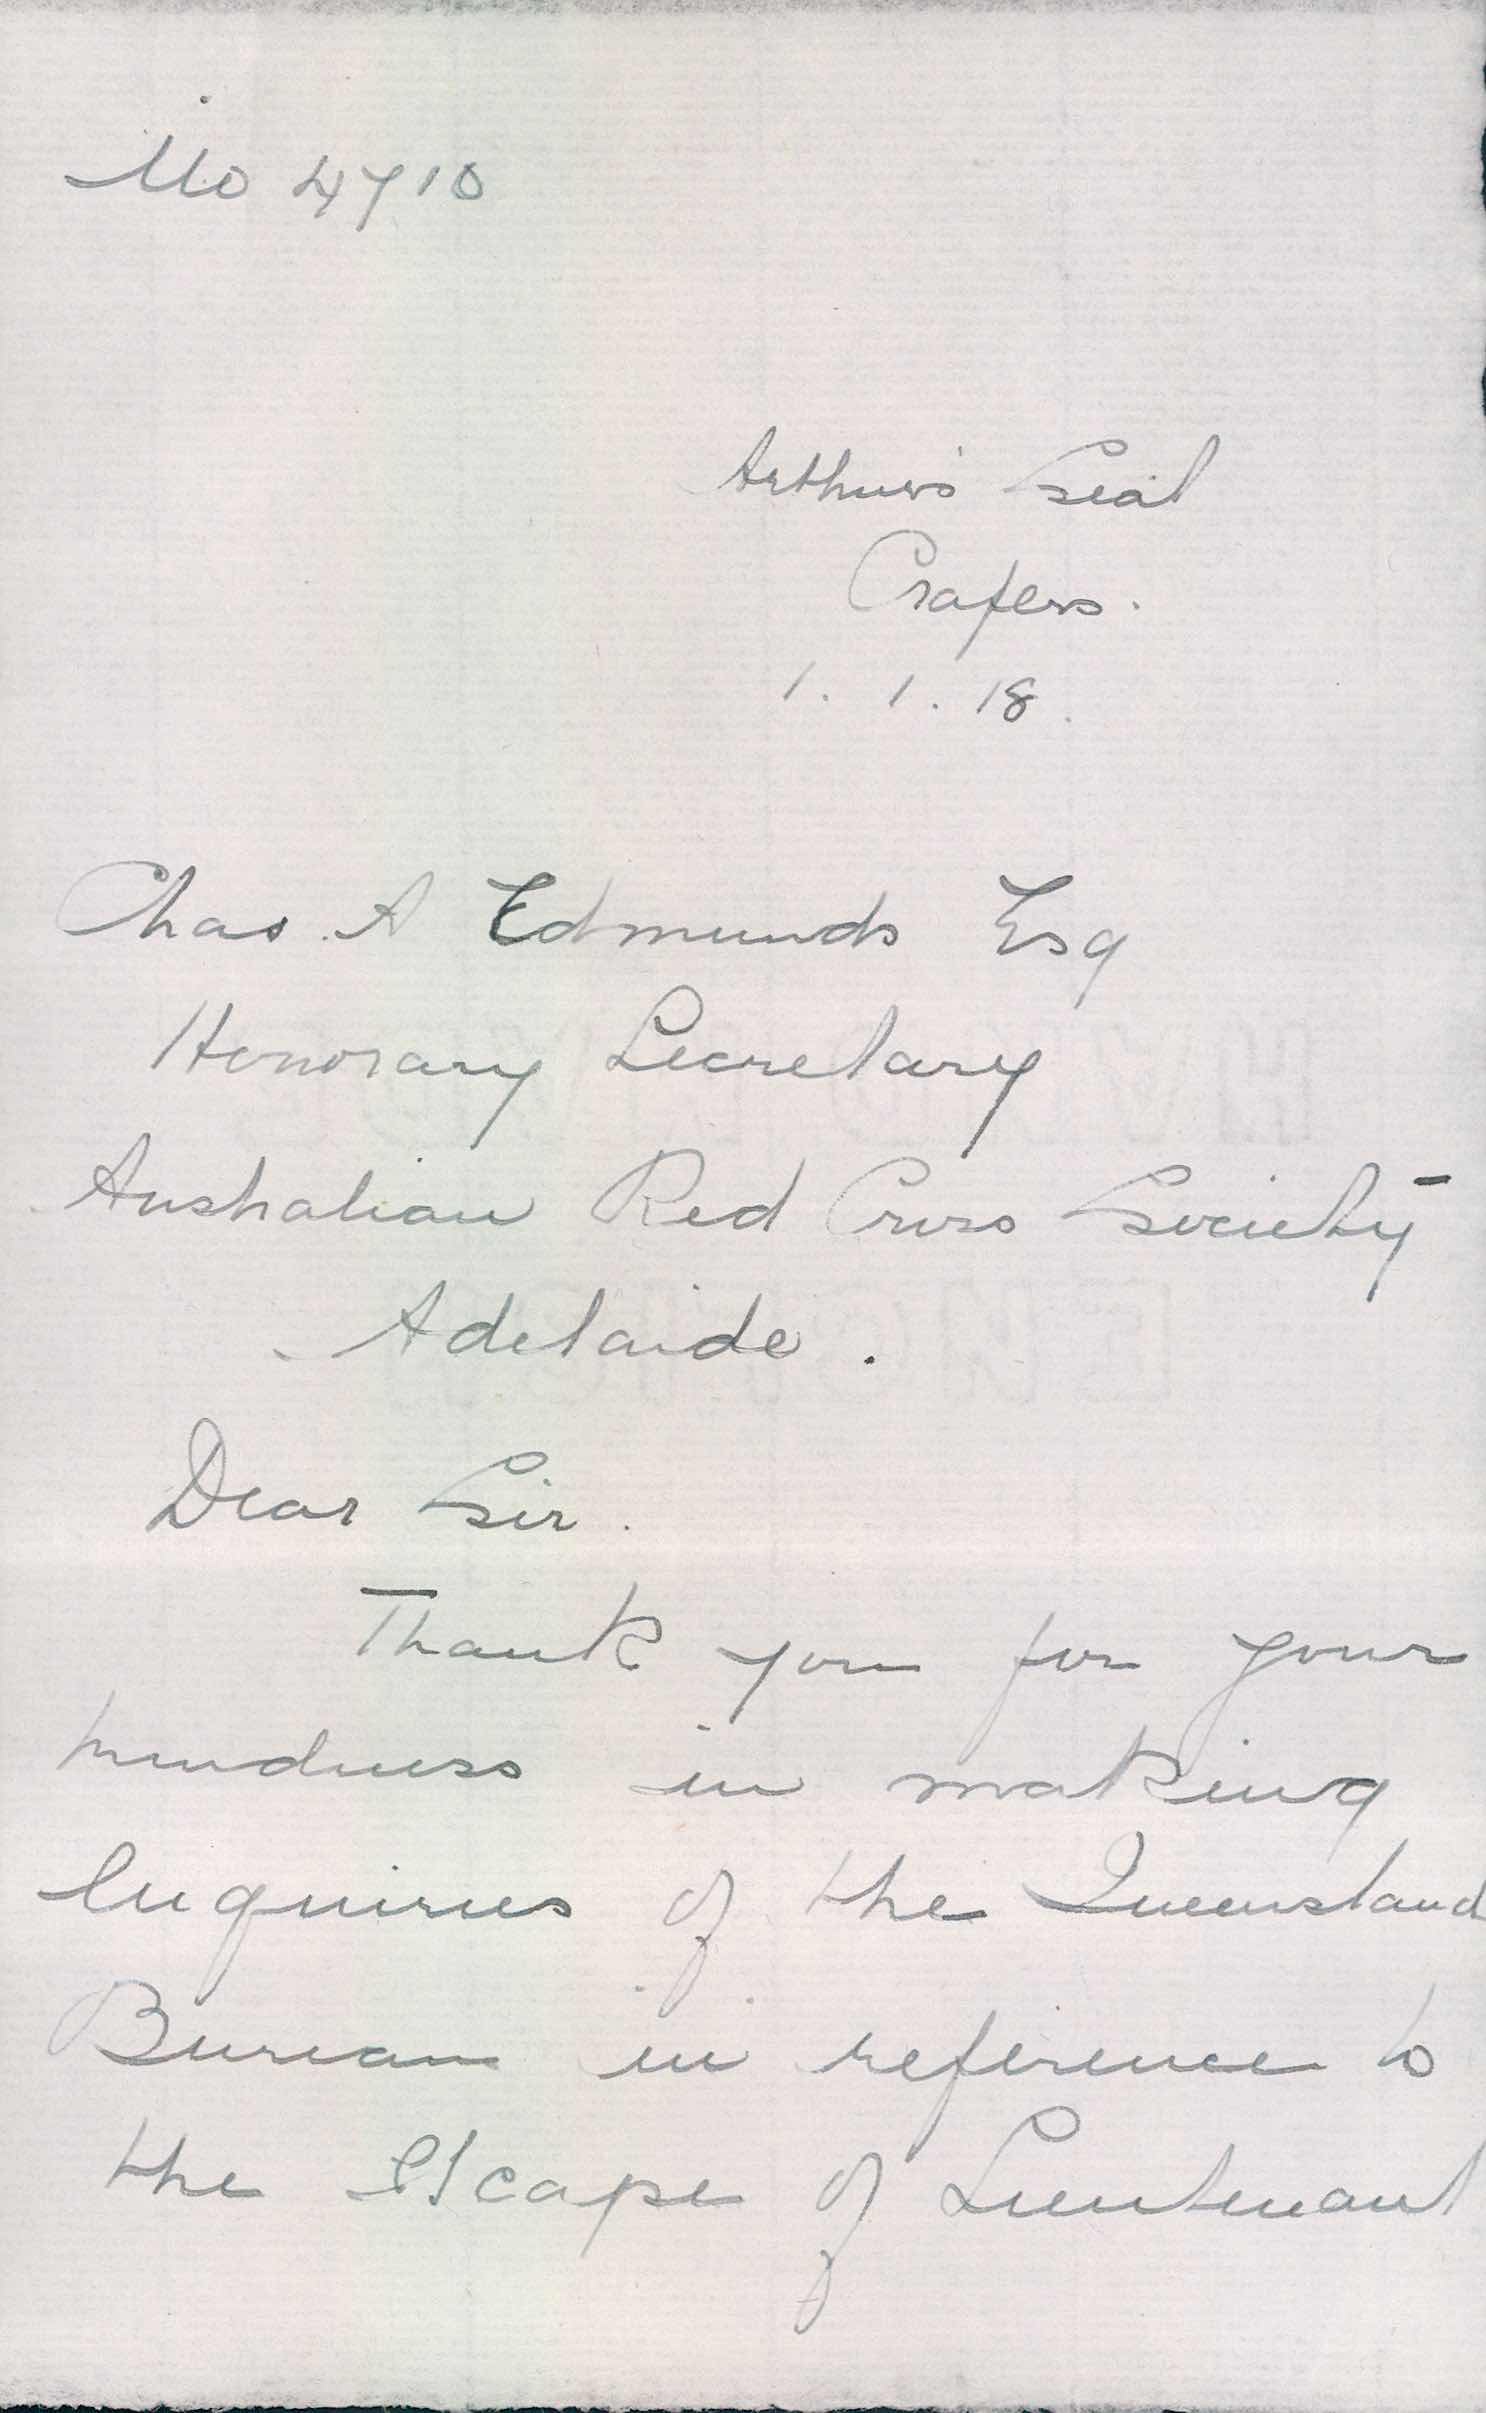 No 4710
Arthur's Seat
Crafers.
1. 1. 18.
Chas. A Edmunds Esq
Honorary Secretary
Australian Red Cross Society
Adelaide.
Dear Sir.
Thank you for your
kindness in making
Enquiries of the Queensland
Bureau in reference to
the Escape of Lieutenant